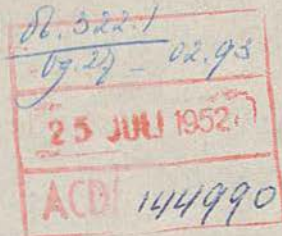 322.1
02.93
25 JULI 1952
ACD 144990